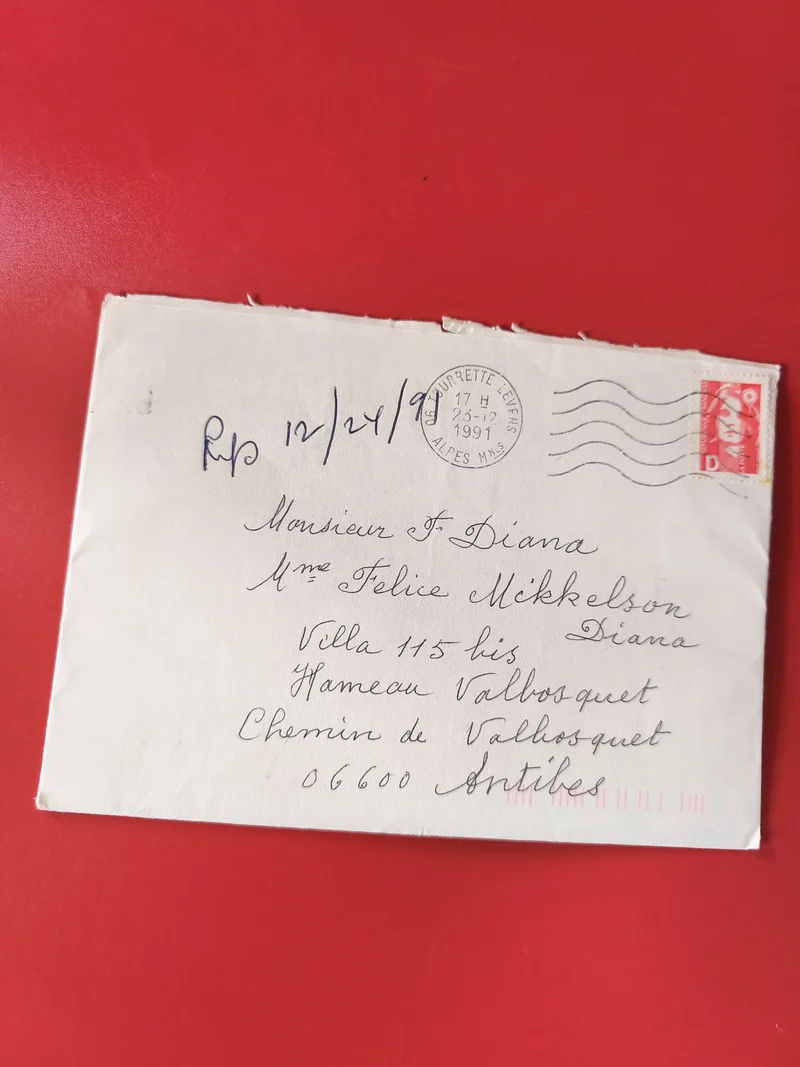 Rep 12/24/91
06 TOURRETTE LEVENS
17 H
23-12
1991
ALPES Mmes
D
Monsieur F Diana
Mme Felice Mikkelson
Diana
Villa 115 bis
Hameau Valbosquet
Chemin de Valbosquet
06600 Antibes